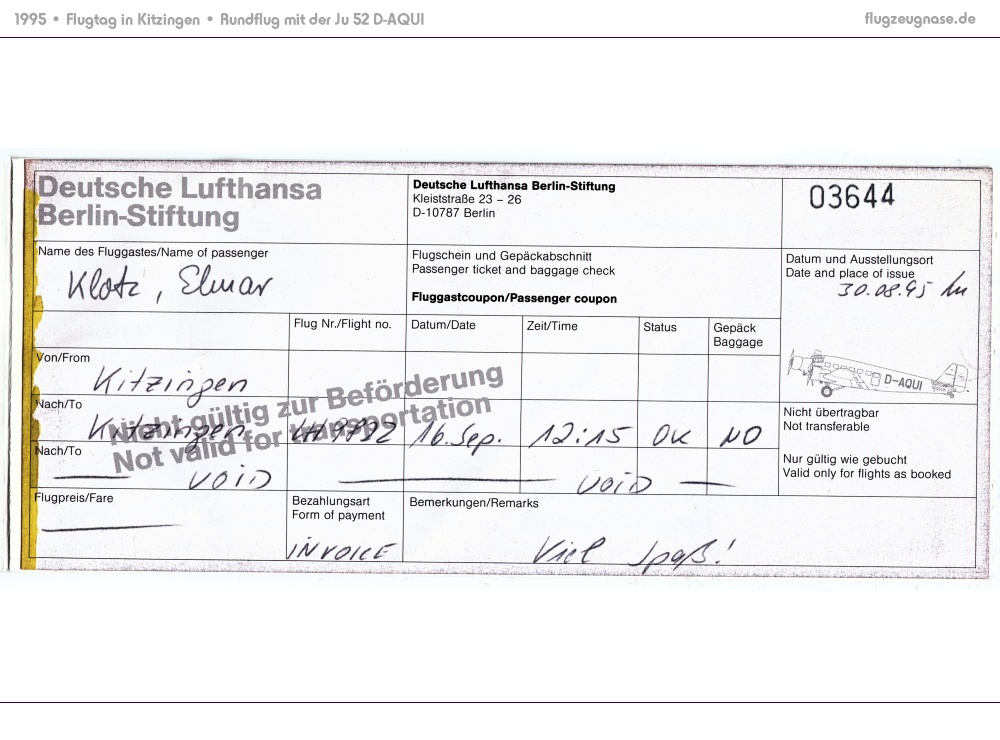 1995 • Flugtag in Kitzingen • Rundflug mit der Ju 52 D-AQUI
flugzeugnase.de
Deutsche Lufthansa
Berlin-Stiftung
Deutsche Lufthansa Berlin-Stiftung
Kleiststraße 23 – 26
D-10787 Berlin
03644
Name des Fluggastes/Name of passenger
Klotz, Elmar
Flugschein und Gepäckabschnitt
Passenger ticket and baggage check
Fluggastcoupon/Passenger coupon
Datum und Ausstellungsort
Date and place of issue
30.08.95
Flug Nr./Flight no.
Datum/Date
Zeit/Time
Status
Gepäck
Baggage
Von/From
Kitzingen
D-AQUI
Nach/To
Kitzingen LH 9792 16. Sep. 12:15 OK NO
Nicht gültig zur Beförderung
Not valid for transportation
Nicht übertragbar
Not transferable
Nach/To
VOID VOID
Nur gültig wie gebucht
Valid only for flights as booked
Flugpreis/Fare
Bezahlungsart
Form of payment
INVOICE
Bemerkungen/Remarks
Viel Spaß!